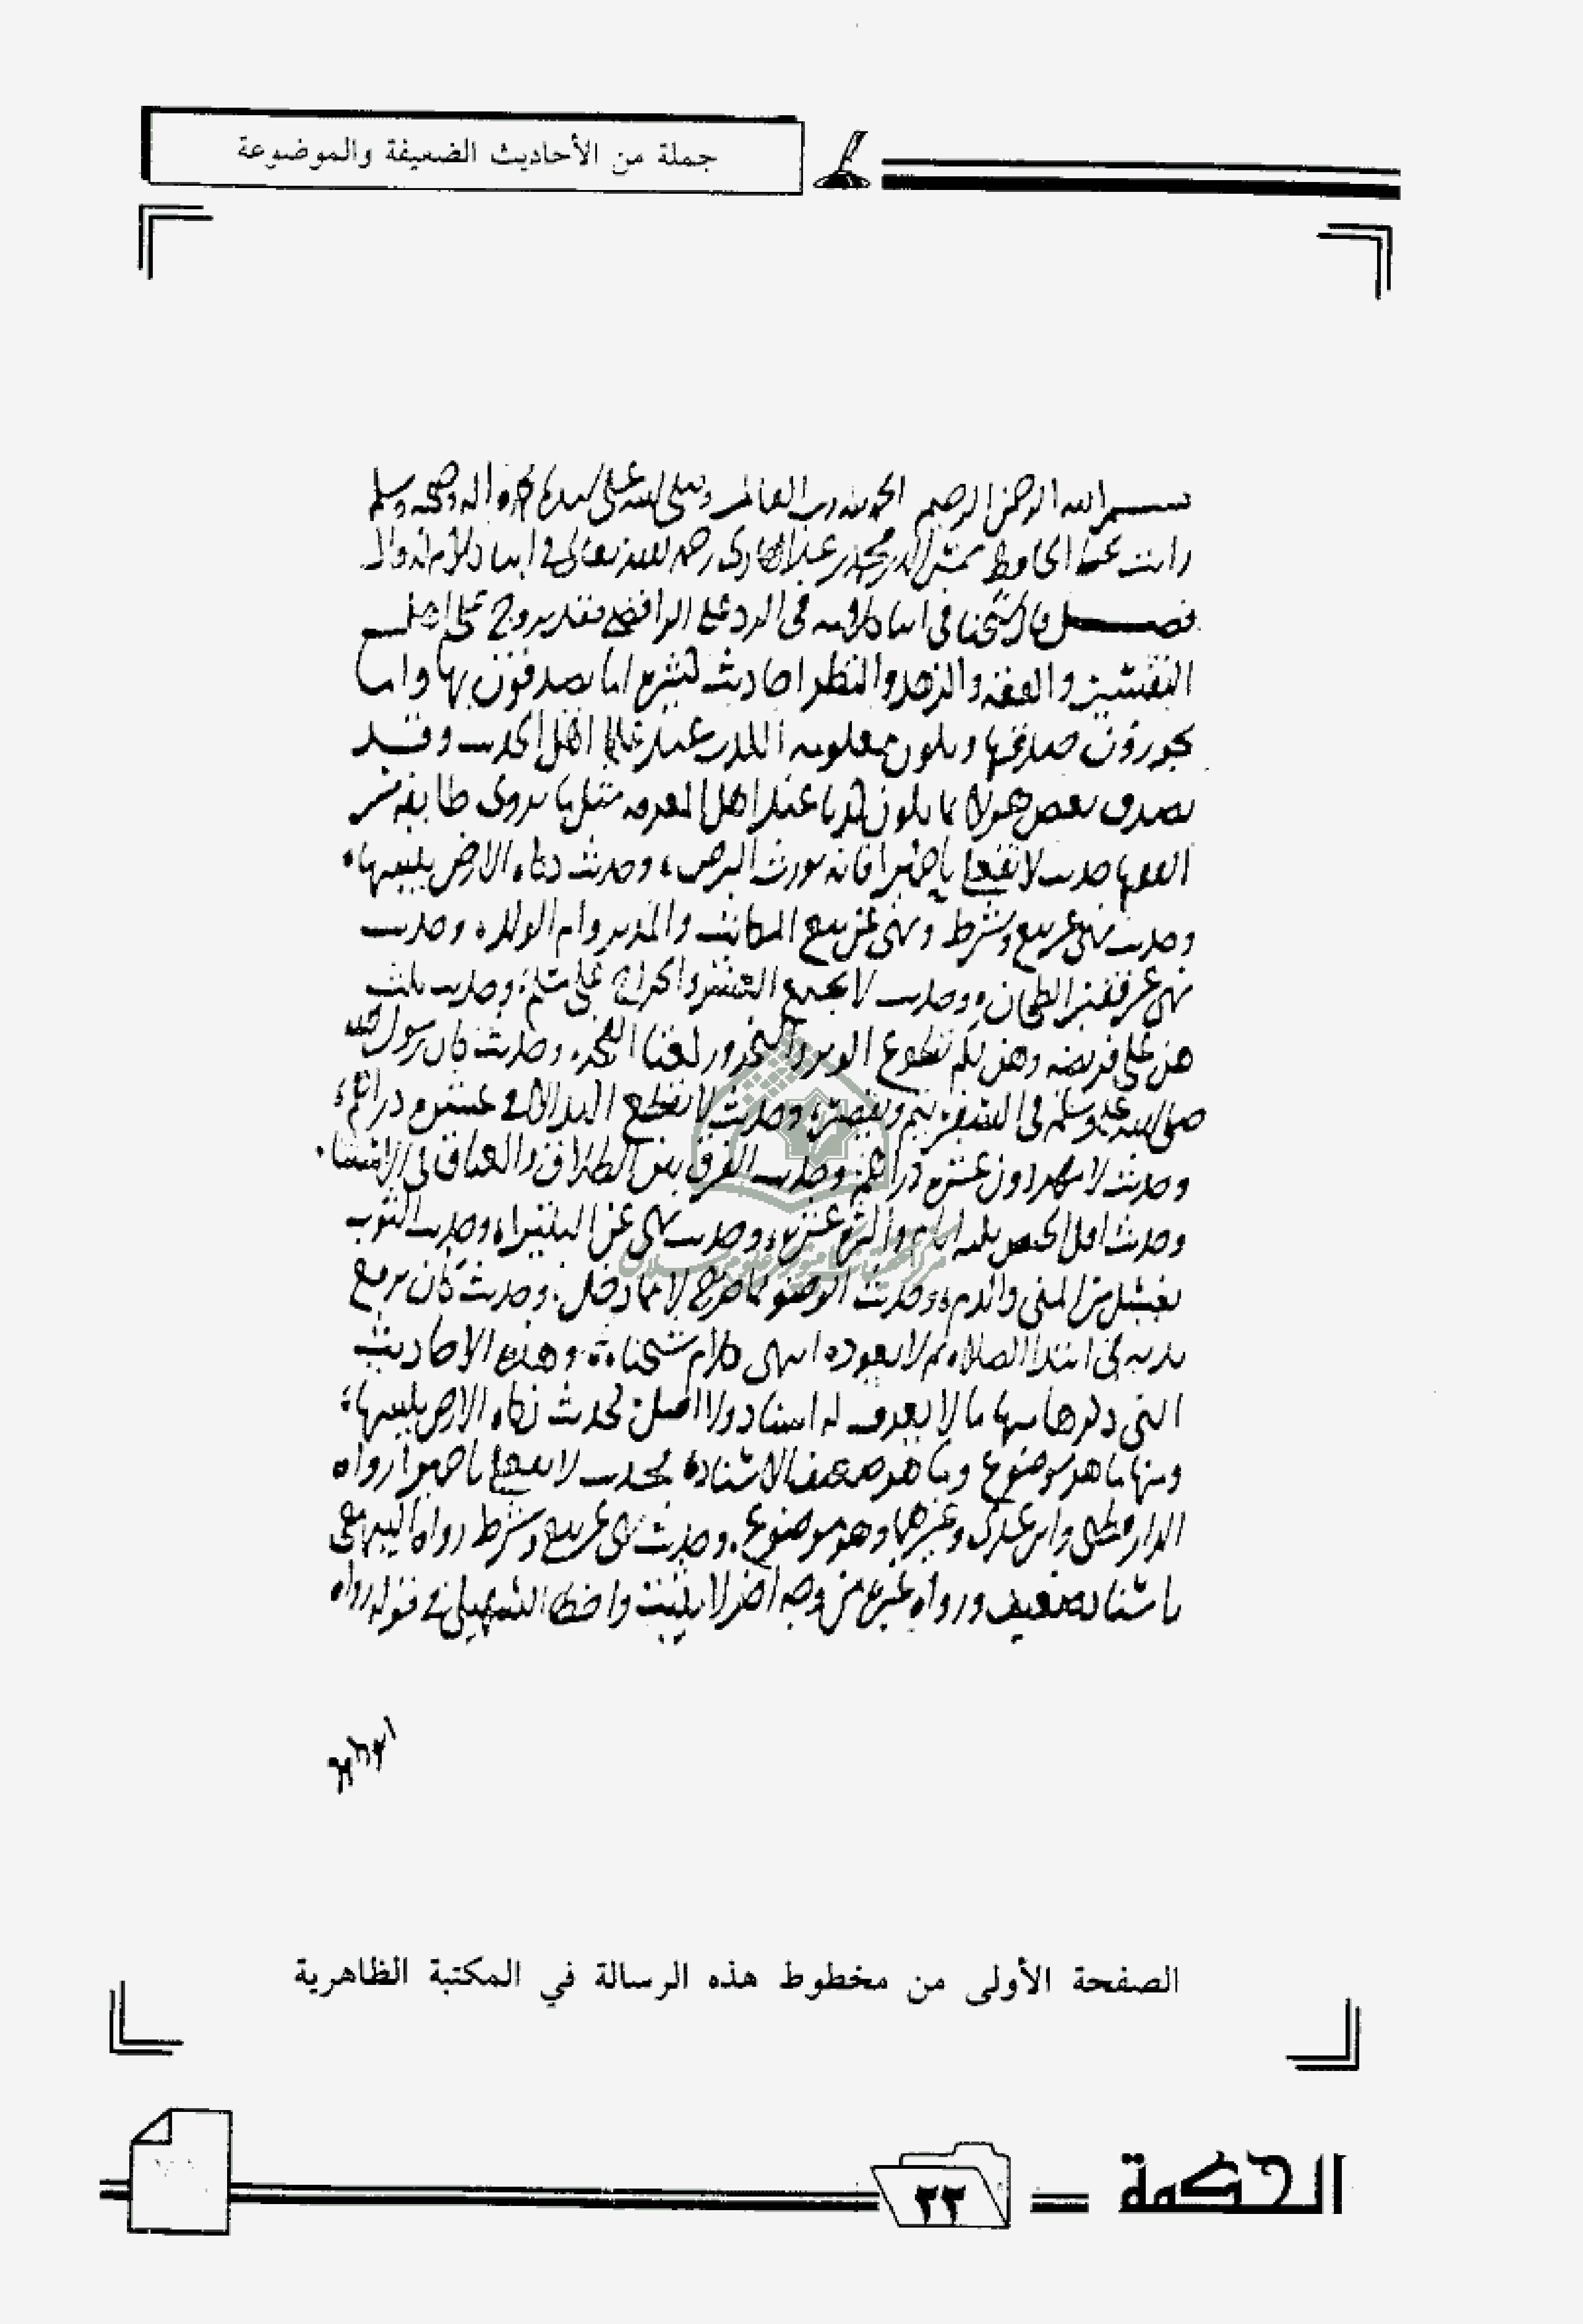 جملة من الأحاديث الضعيفة والموضوعة
بسم الله الرحمن الرحيم الحمد لله رب العالمين وصلى الله على سيدنا محمد واله وصحبه وسلم
رايت بخط الحافظ شمس الدين محمد بن عبد الهادي رحمه الله تعالى في
فصل قال شيخنا في اثنا كلامه في الرد على الرافضي وقد يروج على اهل
التفسير والفقه والزهد والنظر احاديث كثيره اما يصدقون بها واما
يجوزون صدقها ويكون معلومه الكذب عند علما اهل الحديث وقد
يصدق بعض هولا بما يكون كذبا عند اهل المعرفه مثل ما يروى طايفه من
الفقها حديث لا تفعلي يا حميرا فانه يورث البرص، وحديث زكاه الارض يبسها.
وحديث نهى عن بيع وشرط ونهى عن بيع المكاتب والمدبر وام الولد. وحديث
نهى عن قفيز الطحان، وحديث لا يجتمع العشر والخراج على مسلم، وحديث ثلث
هن علي فريضه وهن لكم تطوع الوتر والنحر وركعتا الفجر. وحديث كان رسول الله
صلى الله عليه وسلم في السفر يتم ويقصر، وحديث لا تقطع اليد الا في عشره دراهم،
وحديث لا مهر دون عشره دراهم، وحديث الفرق بين الطلاق والعتاق في الاستثنا.
وحديث اقل الحيض ثلثه ايام واكثره عشره، وحديث نهى عن البتيرا، وحديث الثوب
يغسل من المني والدم، وحديث الوضو مما خرج لا مما دخل، وحديث كان يرفع
يديه في ابتدا الصلاه ثم لا يعود، انتهى كلام شيخنا، وهذه الاحاديث
التي ذكرها منها ما لا يعرف له اسناد ولا اصل كحديث زكاه الارض يبسها،
ومنها ما هو موضوع وما هو ضعيف الاسناد، فحديث لا تفعلي يا حميرا رواه
الدارقطني وابن عدي وغيرهما وهو موضوع. وحديث نهى عن بيع وشرط رواه البيهقي
باسناد ضعيف ورواه غيره من وجه اخر لا يثبت واخطا السهيلي في قوله رواه
الصفحة الأولى من مخطوط هذه الرسالة في المكتبة الظاهرية
الحكمة
٢٢